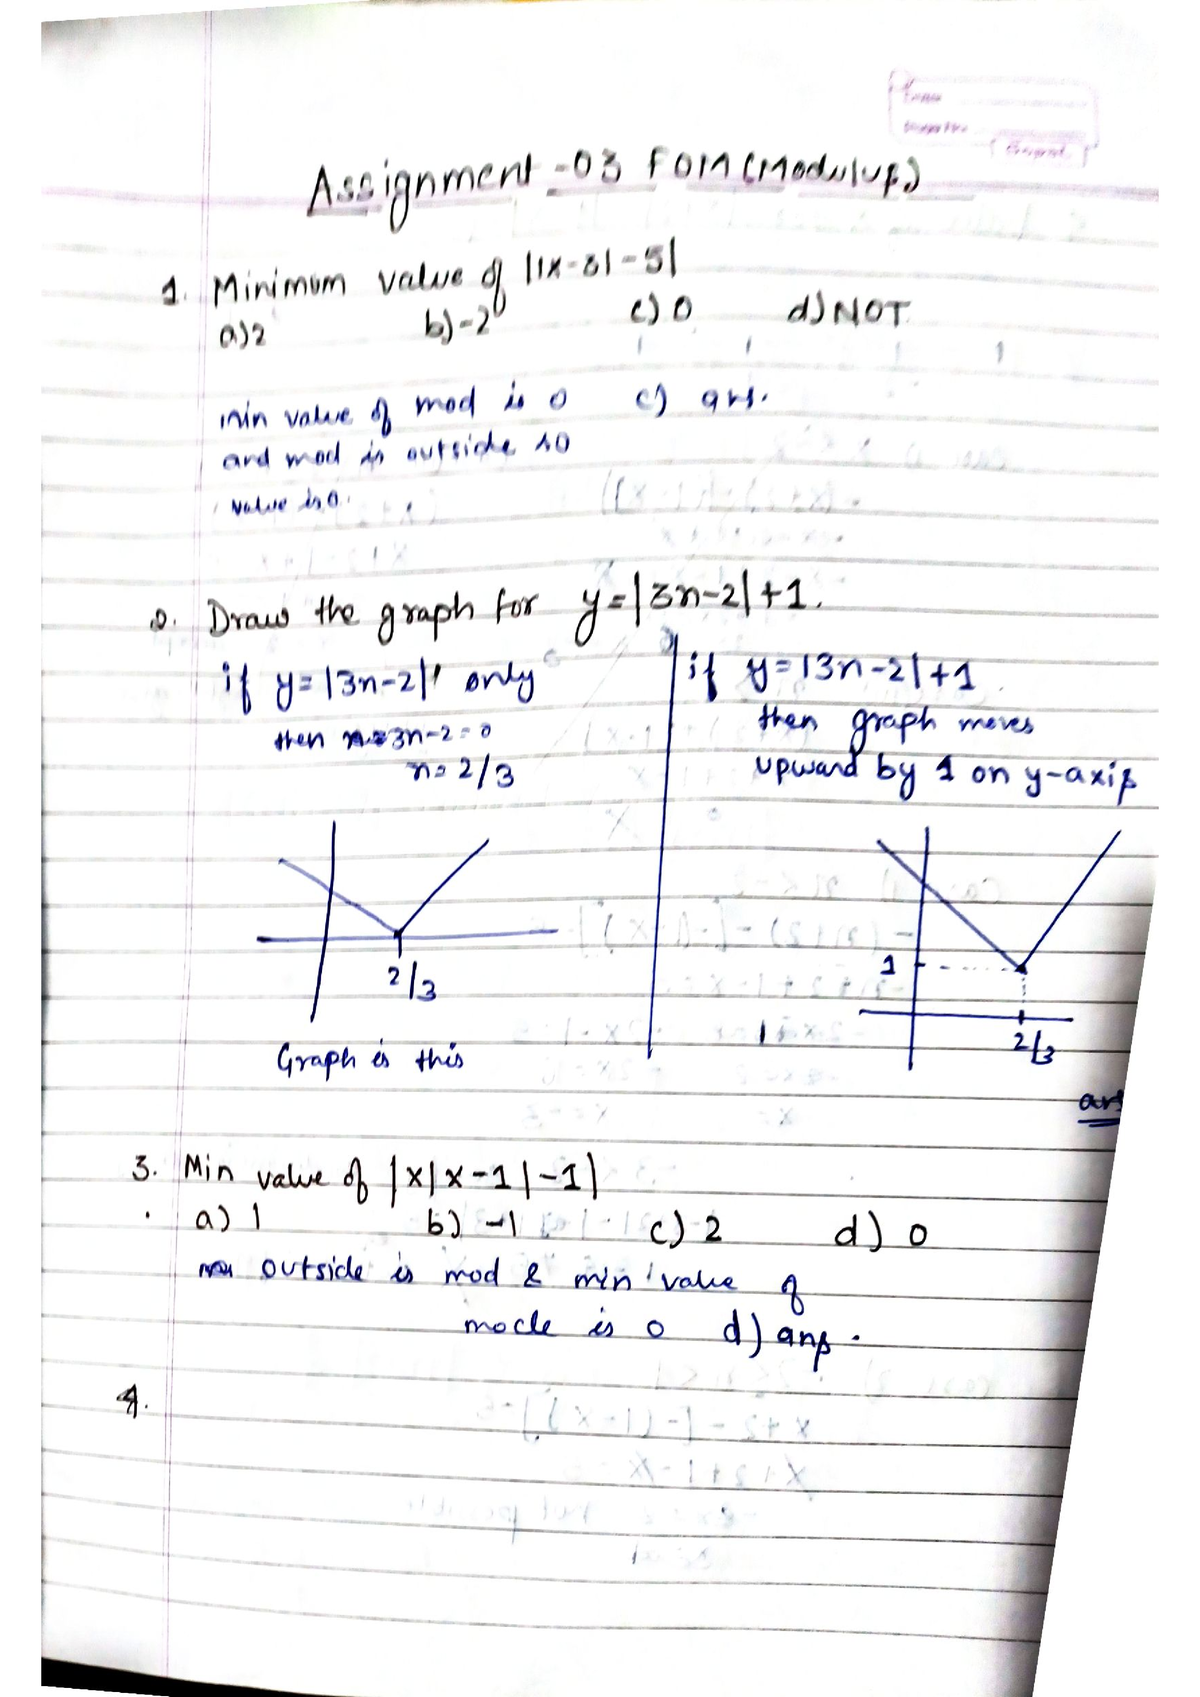 Assignment -03 FOM (Modulus)
1. Minimum value of ||x-3|-5|
a) 2 b) -2 c) 0 d) NOT
min value of mod is 0 c) ans.
and mod is outside so
value is 0.
2. Draw the graph for y=|3n-2|+1.
if y=|3n-2| only
then 3n-2=0
n=2/3
2/3
Graph is this
if y=|3n-2|+1
then graph moves
upward by 1 on y-axis
1
2/3
ans
3. Min value of |x|x-1|-1|
a) 1 b) -1 c) 2 d) 0
outside is mod & min value of
mode is 0 d) ans.
4.